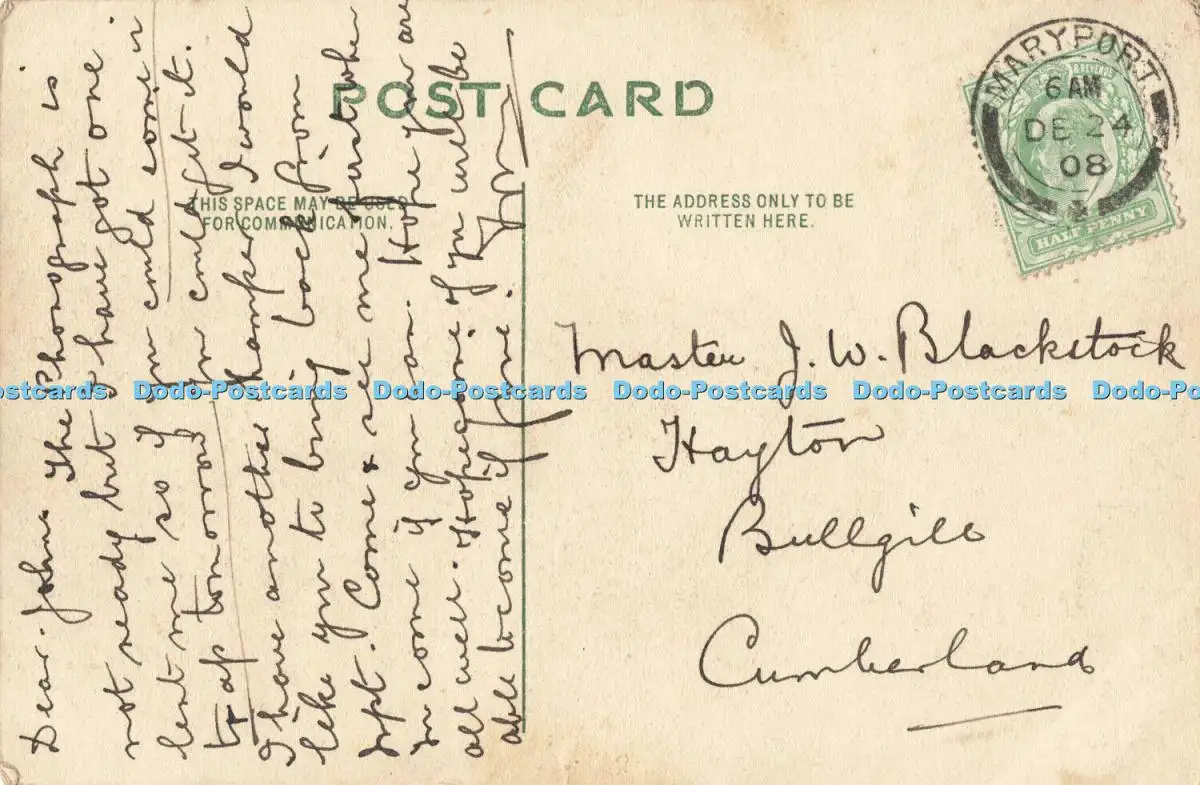 POST CARD
THIS SPACE MAY BE USED
FOR COMMUNICATION.
THE ADDRESS ONLY TO BE
WRITTEN HERE.
MARYPORT
6 AM
DE 24
08
HALF PENNY
Master J. W. Blackstock
Hayton
Bullgill
Cumberland
Dear John. The Phonograph is
not ready but I have got one
lent me so if you could come in
trap tomorrow you could get it.
I have another hamper I would
like you to bring back from
Come & see me just when
you come if you can. Hope you are
all well. Hope if you will be
able to come if fine.
Dodo-Postcards Dodo-Postcards Dodo-Postcards Dodo-Postcards Dodo-Postcards